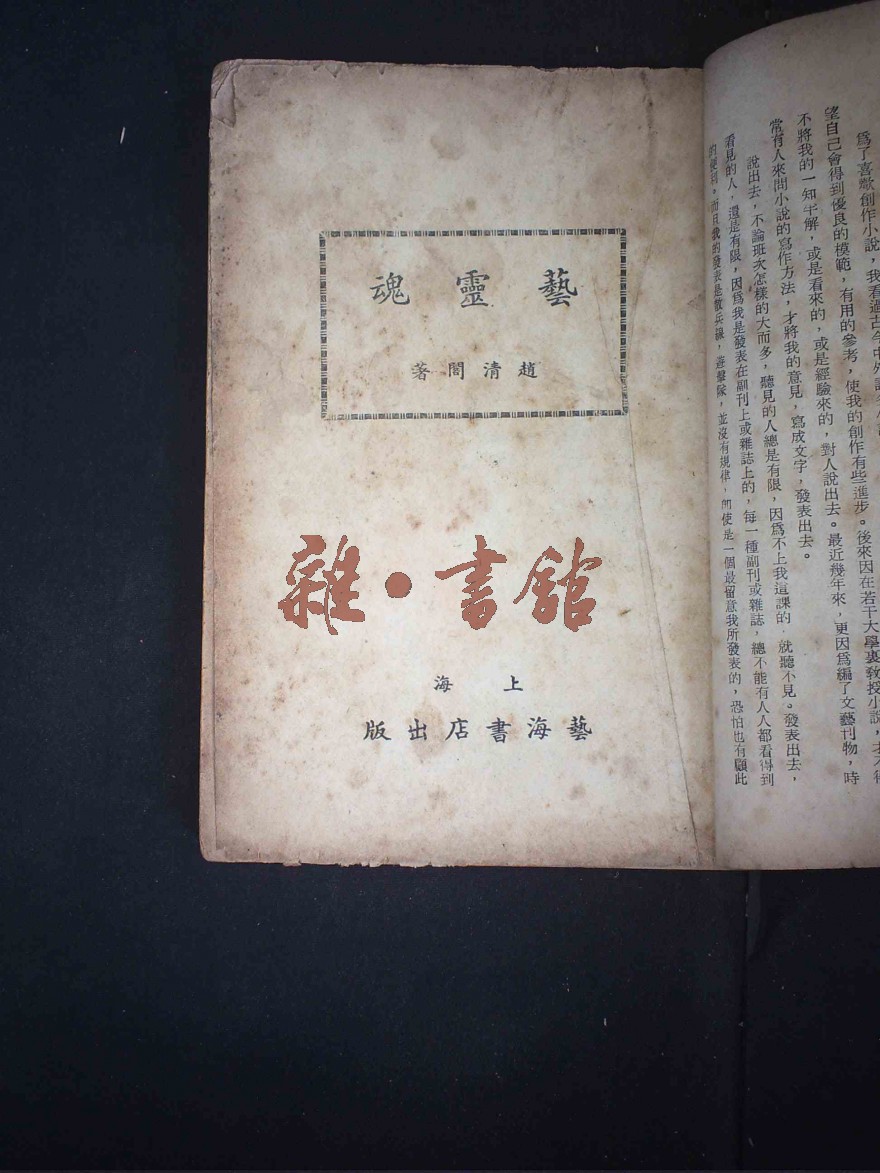 藝靈魂
趙清閣著
雜·書館
上海
藝海書店出版
爲了喜歡創作小說，我看過古今中外
望自己會得到優良的模範，有用的參考，使我的創作有些進步。後來因在若干大學裏敎授小說，才不得
不將我的一知半解，或是看來的，或是經驗來的，對人說出去。最近幾年來，更因爲編了文藝刊物，時
常有人來問小說的寫作方法，才將我的意見，寫成文字，發表出去。
說出去，不論班次怎樣的大而多，聽見的人總是有限，因爲不上我這課的，就聽不見。發表出去，
看見的人，還是有限，因爲我是發表在副刊上或雜誌上的，每一種副刊或雜誌，總不能有人人都看得到
的便利，而且我的發表是散兵線，遊擊隊，並沒有規律，卽使是一個最留意我所發表的，恐怕也有顧此